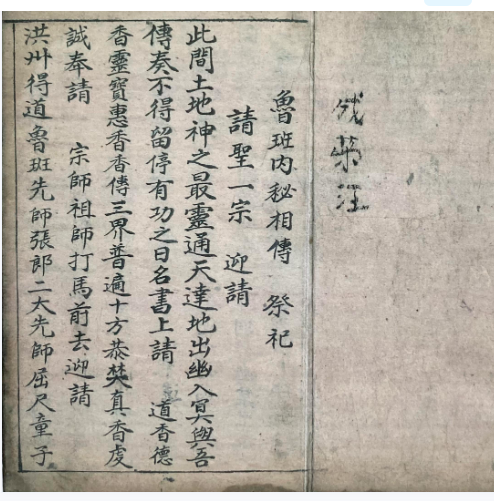 魯班内秘相傳 祭祀
請聖一宗 迎請
此間土地神之最靈通天達地出幽入冥與吾
傳奏不得留停有功之日名書上請 道香德
香靈寶惠香香傳三界普遍十方恭焚真香虔
誠奉請 宗師祖師打馬前去迎請
洪州得道魯班先師張郎二太先師屈尺童子